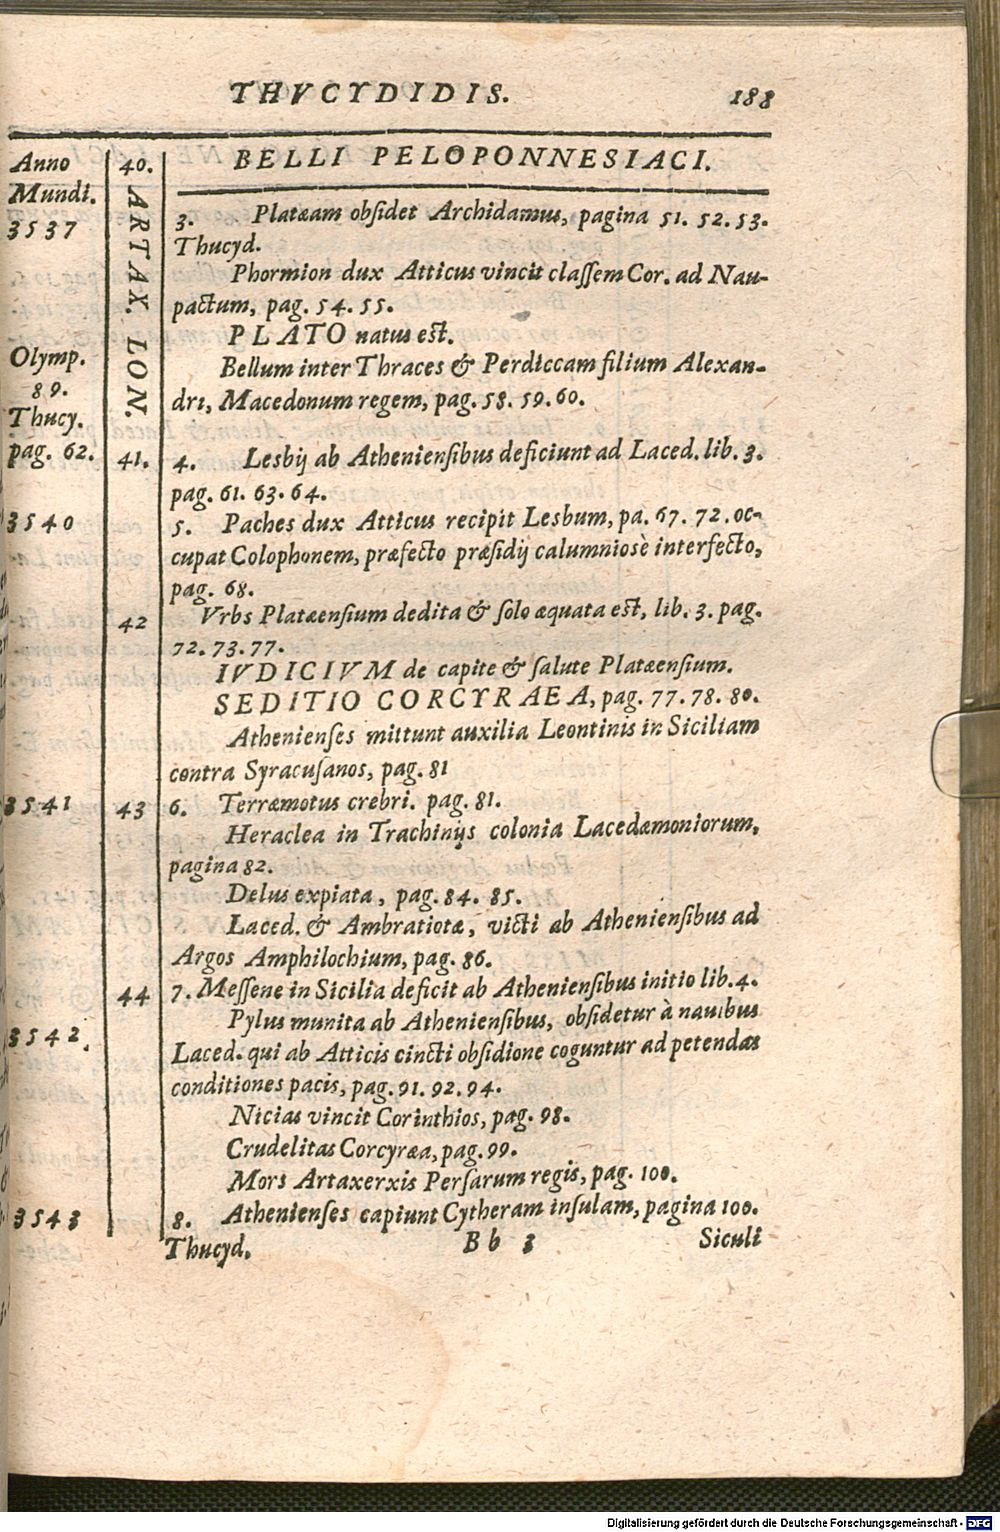 THVCYDIDIS. 188
Anno 40. BELLI PELOPONNESIACI.
Mundi.
3537
ARTAX. LON.
3. Platæam obſidet Archidamus, pagina 51. 52. 53.
Thucyd.
Phormion dux Atticus vincit claſſem Cor. ad Nau-
pactum, pag. 54. 55.
PLATO natus est.
Bellum inter Thraces & Perdiccam filium Alexan-
dri, Macedonum regem, pag. 58. 59. 60.
Olymp.
89.
Thucy.
pag. 62. 41. 4. Lesbij ab Athenienſibus deficiunt ad Laced. lib. 3.
pag. 61. 63. 64.
3540 5. Paches dux Atticus recipit Lesbum, pa. 67. 72. oc-
cupat Colophonem, præfecto præſidij calumniosè interfecto,
pag. 68.
42 Vrbs Platæenſium dedita & ſolo æquata est, lib. 3. pag.
72. 73. 77.
IVDICIVM de capite & ſalute Platæenſium.
SEDITIO CORCYRAEA, pag. 77. 78. 80.
Athenienſes mittunt auxilia Leontinis in Siciliam
contra Syracuſanos, pag. 81
3541 43 6. Terræmotus crebri. pag. 81.
Heraclea in Trachinijs colonia Lacedæmoniorum,
pagina 82.
Delus expiata, pag. 84. 85.
Laced. & Ambratiotæ, victi ab Athenienſibus ad
Argos Amphilochium, pag. 86.
44 7. Meſſene in Sicilia deficit ab Athenienſibus initio lib. 4.
Pylus munita ab Athenienſibus, obſidetur à nauibus
3542. Laced. qui ab Atticis cincti obſidione coguntur ad petendas
conditiones pacis, pag. 91. 92. 94.
Nicias vincit Corinthios, pag. 98.
Crudelitas Corcyræa, pag. 99.
Mors Artaxerxis Perſarum regis, pag. 100.
3543 8. Athenienſes capiunt Cytheram inſulam, pagina 100.
Thucyd. Bb 3 Siculi
Digitalisierung gefördert durch die Deutsche Forschungsgemeinschaft - DFG